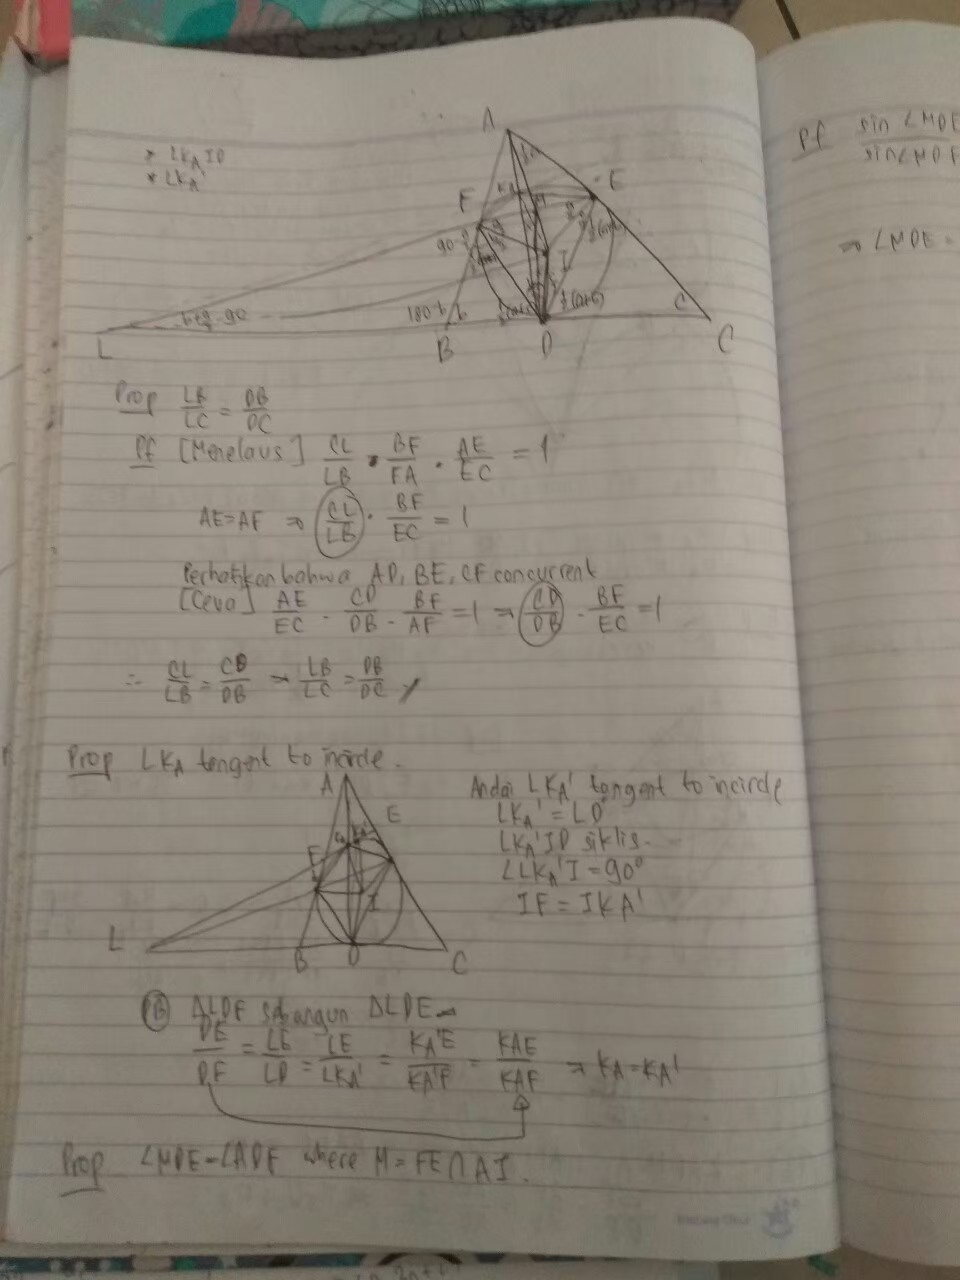 * LK_A ID
* LK_A'
A
K_A
E
F
M
I
90-
b+a/2-90
180-b
b
1/2(a+c)
1/2(a+b)
C
L
B
D
C
Prop LB/LC = DB/DC
Pf [Menelaus] CL/LB . BF/FA . AE/EC = 1
AE=AF ⇒ CL/LB . BF/EC = 1
Perhatikan bahwa AD, BE, CF concurrent
[Ceva] AE/EC . CD/DB . BF/AF = 1 ⇒ CD/DB . BF/EC = 1
∴ CL/LB = CD/DB → LB/LC = DB/DC
Prop LK_A tangent to incircle.
A
E
F
I
L
B
D
C
Andai LK_A' tangent to incircle
LK_A' = LD
LK_A'ID siklis.
∠LK_A'I = 90°
IF = IK_A'
(PB) ΔLDF sebangun ΔLDE
DE/DF = LE/LD = LE/LK_A' = K_A'E/K_A'F = K_AE/K_AF ⇒ K_A = K_A'
Prop ∠MDE = ∠ADF where M = FE ∩ AI.
Pf sin ∠MDE
sin ∠MDF
⇒ ∠MDE =